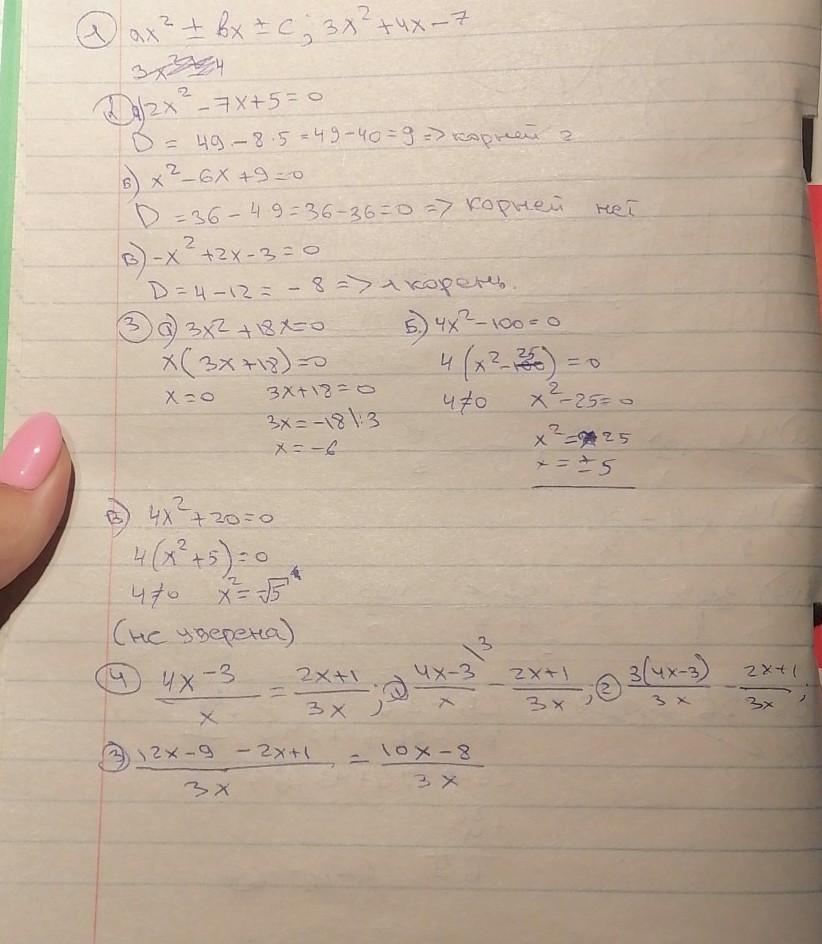 1 ax² ± bx ± c ; 3x² + 4x - 7
2 а) 2x² - 7x + 5 = 0
D = 49 - 8·5 = 49 - 40 = 9 => корней 2
б) x² - 6x + 9 = 0
D = 36 - 4·9 = 36 - 36 = 0 => корней нет
в) -x² + 2x - 3 = 0
D = 4 - 12 = -8 => 1 корень.
3 а) 3x² + 18x = 0
x(3x + 18) = 0
x = 0 3x + 18 = 0
3x = -18 \:3
x = -6
Б) 4x² - 100 = 0
4(x² - 25) = 0
4 ≠ 0 x² - 25 = 0
x² = 25
x = ± 5
в) 4x² + 20 = 0
4(x² + 5) = 0
4 ≠ 0 x² = -√5
(не уверена)
4 (4x - 3)/x = (2x + 1)/3x ; 1) (4x - 3)\3/x - (2x + 1)/3x ; 2) 3(4x - 3)/3x - (2x + 1)/3x ;
3) (12x - 9 - 2x + 1)/3x = (10x - 8)/3x